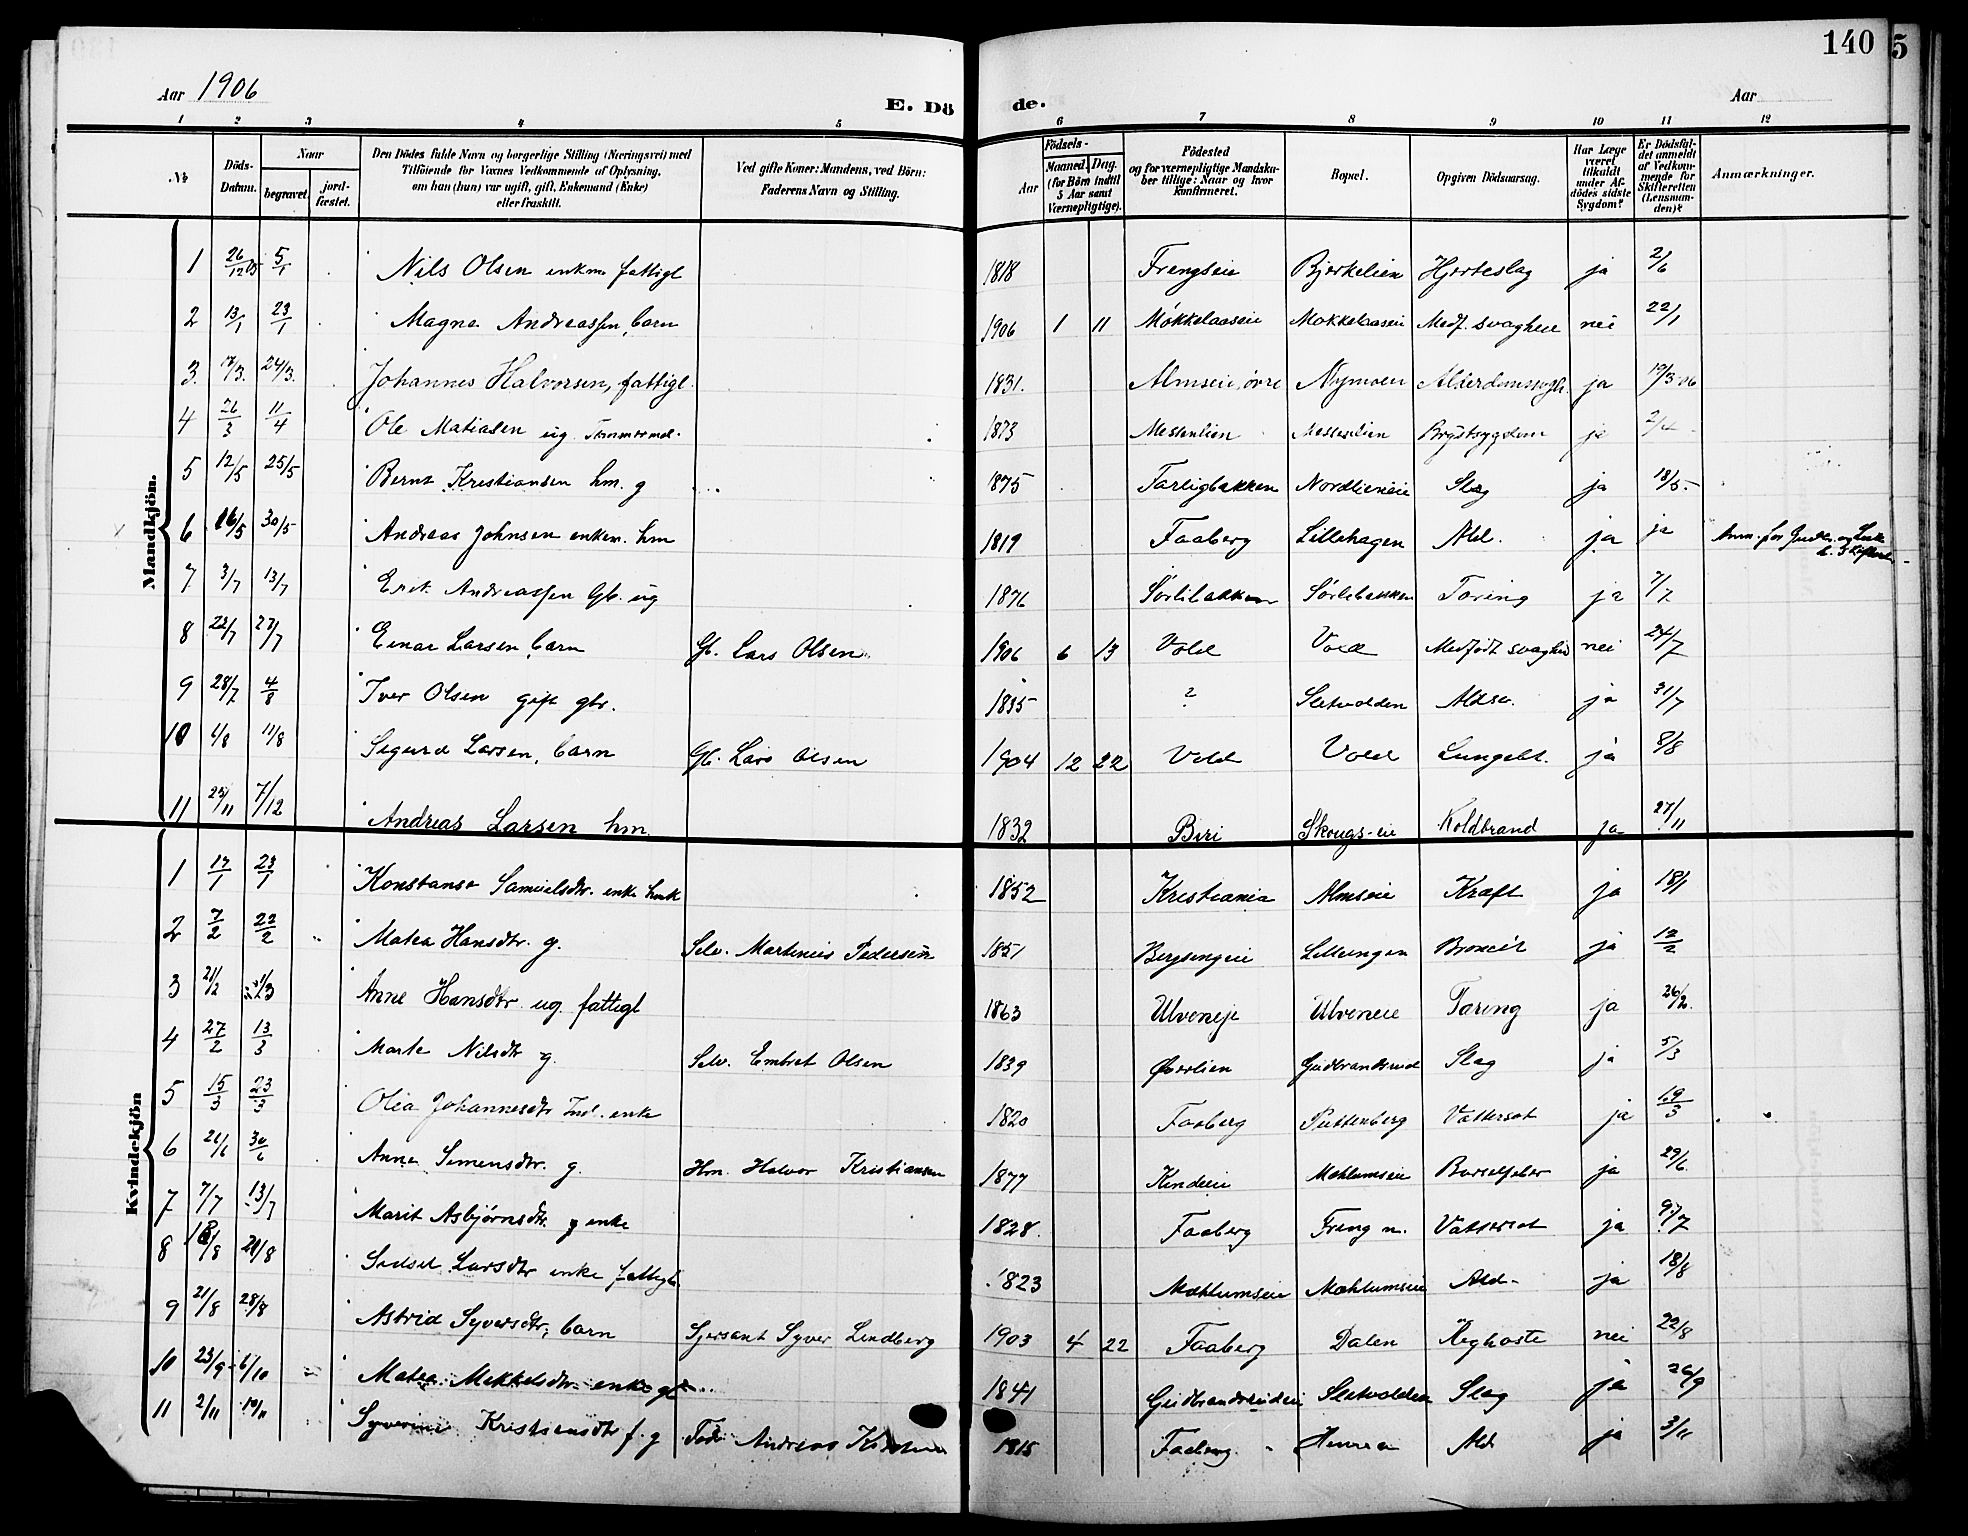 140
5
Aar 1906
E. Dö
de.
Aar
1 2 3 4 5 6 7 8 9 10 11 12
No
Döds-Datum.
Naar
begravet.
jord-fæstet.
Den Dödes fulde Navn og borgerlige Stilling (Næringsvei) med
Tilföiende for Voxnes Vedkommende af Oplysning,
om han (hun) var ugift, gift, Enkemand (Enke)
eller fraskilt.
Ved gifte Koner: Mandens, ved Börn:
Faderens Navn og Stilling.
Födsels-
Aar
Maaned. Dag.
(for Börn indtil
5 Aar samt
Værnepligtige).
Födested
og for værnepligtige Mandska-
ber tillige: Naar og hvor
konfirmeret.
Bopæl.
Opgiven Dödsaarsag.
Har Læge
været
tilkaldt
under Af-
dödes sidste
Sygdom?
Er Dödsfal-
det anmeldt
af Vedkom-
mende for
Skifteretten
(Lensman-
den)?
Anmærkninger.
Mandkjön.
1 26/12 05 5/1 Nils Olsen enkm fattigl 1818 Frengseie Bjerkelien Hjerteslag ja 2/6
2 13/1 23/1 Magne Andreassen, barn 1906 1 11 Mokkelaaseie Mokkelaaseie Medf. svaghed nei 22/1
3. 17/3. 24/3. Johannes Halvorsen, fattigl. 1831. Almseie, övre Nymoen Alderdomssvagh. ja 19/3 06
4 26/3 11/4 Ole Matiasen ug. Tömmermd. 1873 Messenlien Messenlien Brystsygdom ja 2/4
5 12/5 25/5 Bernt Kristiansen hm. g 1875 Farligbakken Nordlieneie Slag ja 18/5
6 16/5 30/5 Andreas Johnsen enkem. hm 1819 Faaberg Lillehagen Ald. ja ja Anm. for
7 3/7 13/7 Erik Andreassen Gb. ug 1876 Sørlibakken Sørlibakken Tæring ja 7/7
8 22/7 27/7 Einar Larsen, barn Gb. Lars Olsen 1906 6 13 Vold Vold Medfödt svaghed nei 24/7
9 28/7 4/8 Iver Olsen gift gbr. 1835 ? Sletvolden Aldsv. ja 31/7
10 6/8 11/8 Sigurd Larsen, barn Gb. Lars Olsen 1904 12 22 Vold Vold Lungebt. ja 8/8
11 25/11 7/12 Andreas Larsen hm. 1832 Biri Skougs-eie Koldbrand ja 27/11
Kvindekjön
1 17/1 23/1 Konstanse Samuelsdtr. enke 1852 Kristiania Almseie Kræft ja 18/1
2 7/2 22/2 Matea Hansdtr. g. Selv. Martinius Pedersen 1851 Bergsengeie Lillengen ja 12/2
3 21/2 Anne Hansdtr ug. fattigl 1863 Ulveneje Ulveneie Tæring ja 26/2.
4 27/2 13/3 Marte Nilsdtr g. Selv. Embret Olsen 1839 Øverlien Gudbrandsrud Slag ja 5/3
5 15/3 23/3 Olea Johannesdtr Ind. enke 1820 Faaberg Puttenberg Vattersot ja 19/3
6 21/6 30/6 Anne Simensdtr. g. Hm. Halvor Kristiansen 1877 Kindeie Mæhlumseie Barselfeber ja 29/6
7 7/7 13/7 Marit Asbjørnsdtr. enke 1828. Faaberg Freng n. Vattersot ja 9/7
8 18/8 21/8 Sidsel Larsdtr enke fattigl. 1823 Mæhlumseie Mæhlumseie Ald. ja 18/8
9 21/8 28/8 Astrid Syversdtr, barn Sjersant Syver Lindberg 1903 4 22 Faaberg Dalen Kighoste nei 22/8
10 23/9 6/10 Matea Mikkelsdtr enke 1841 Gudbrandsrudeie Sletvolden Slag ja 26/9
11 2/11 10/11 Syverine Kristiansdtr f. g Andreas 1815 Faaberg Ald ja 3/11